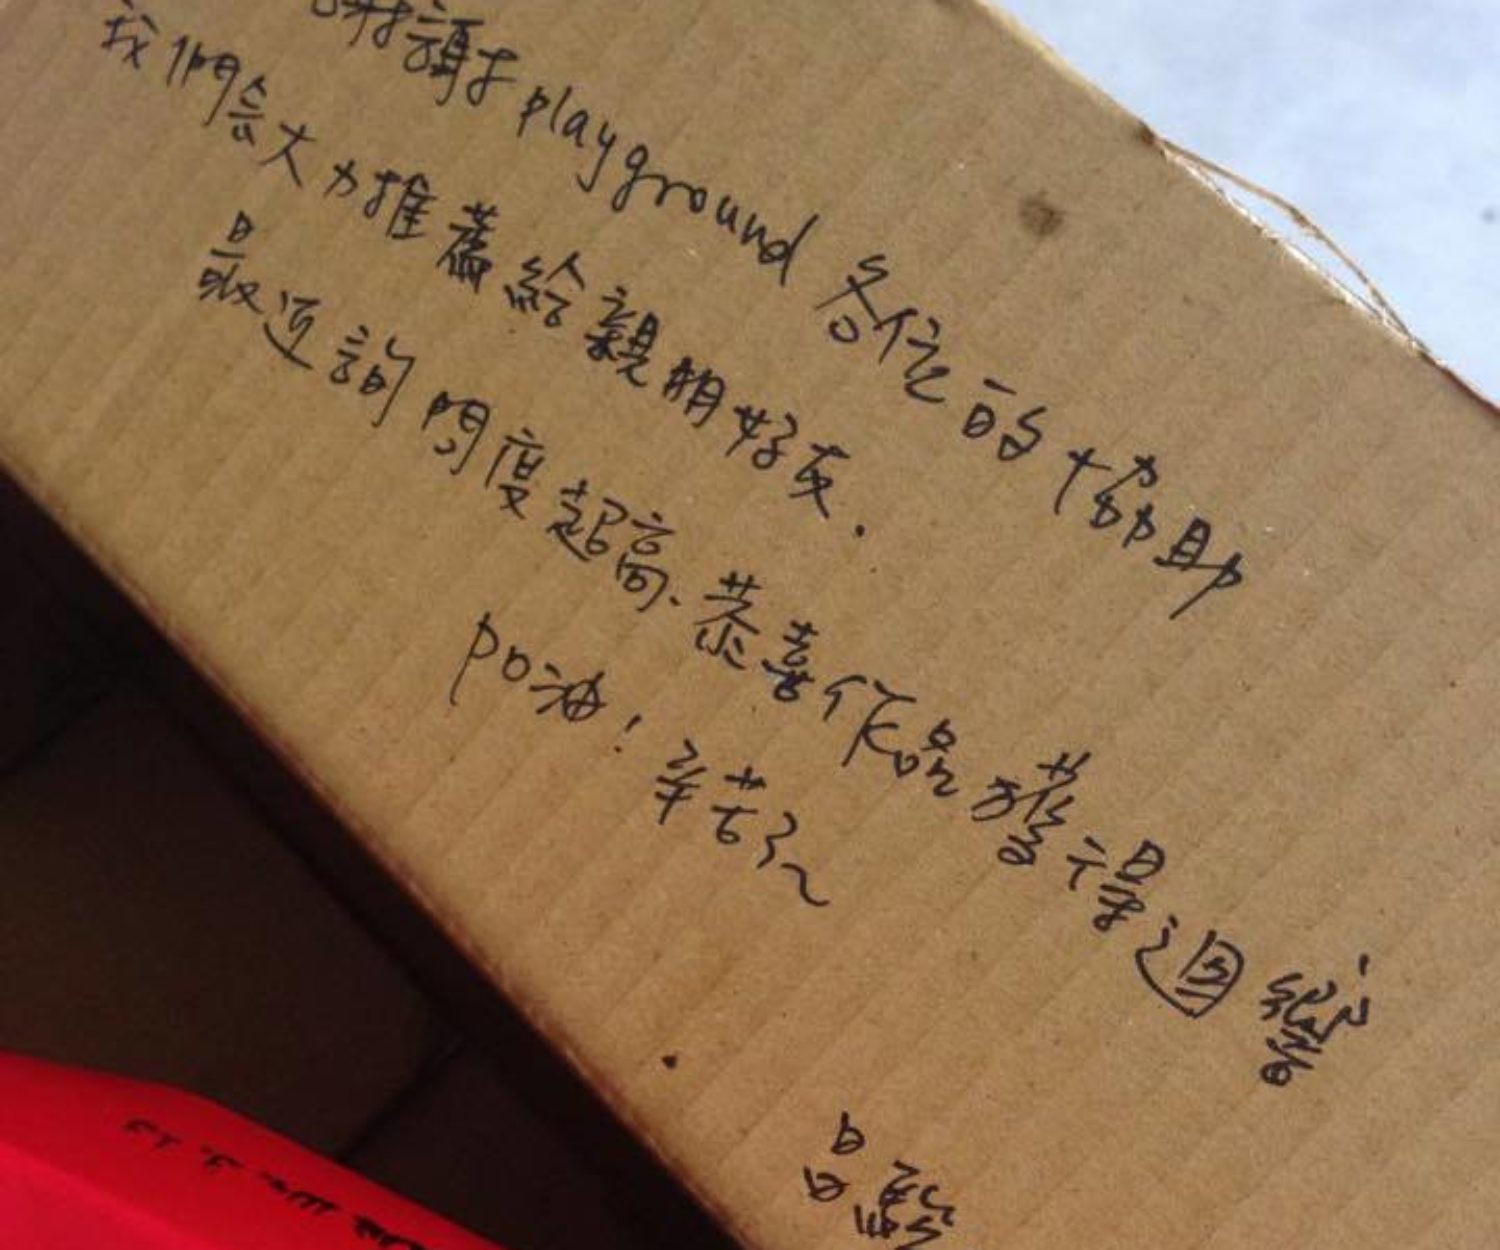 謝謝 playground 各位的協助
我們会大力推薦給親朋好友.
最近詢問度超高.恭喜作品獲得迴響
po油!辛苦了~